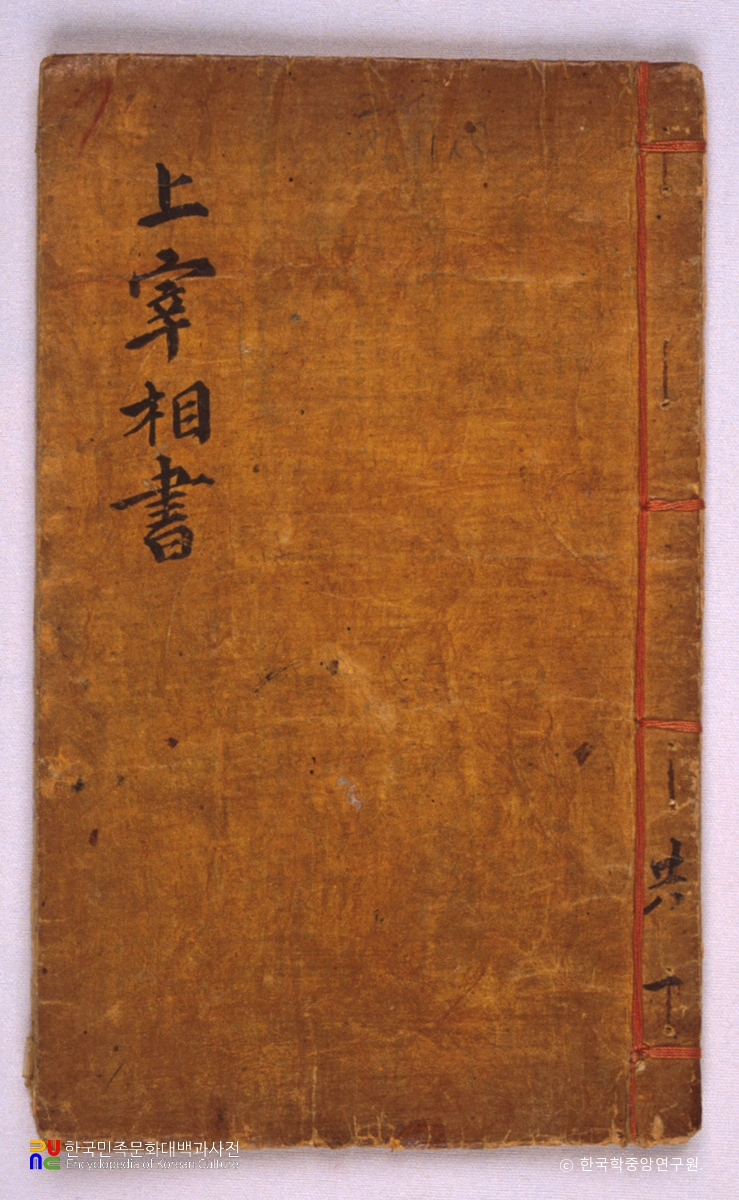 上宰相書
共
한국민족문화대백과사전
Encyclopedia of Korean Culture
© 한국학중앙연구원